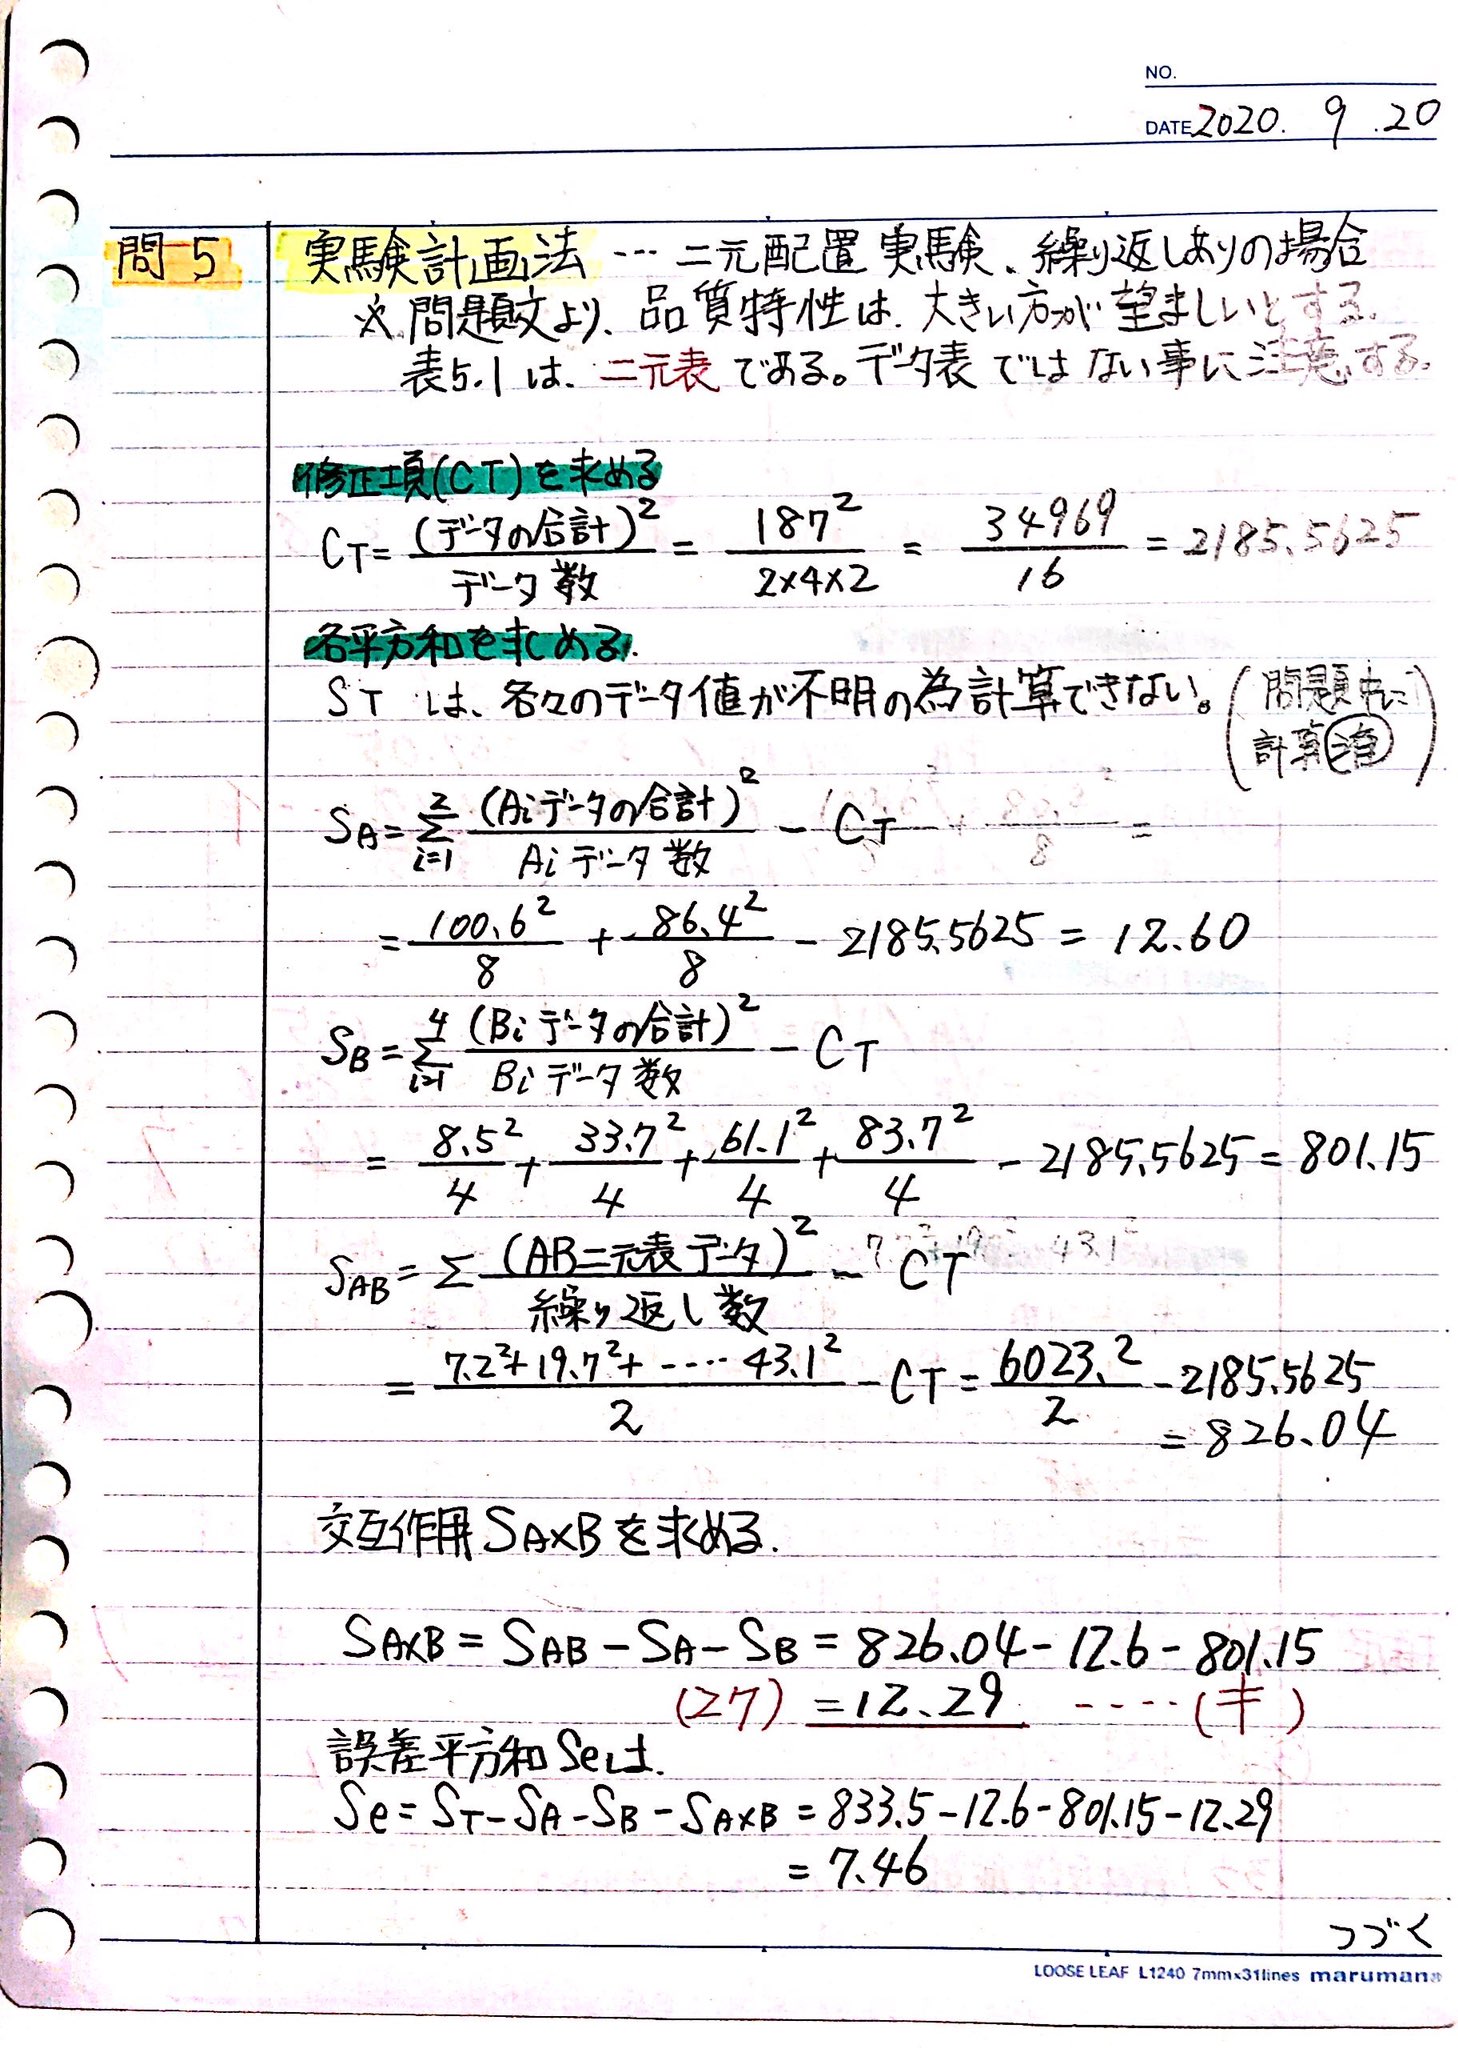 NO.
DATE 2020. 9 .20
問5 実験計画法 … 二元配置実験、繰り返しありの場合
※ 問題文より、品質特性は、大きい方が望ましいとする。
表5.1は、二元表である。データ表ではない事に注意する。
修正項(CT)を求める
CT = (データの合計)² / データ数 = 187² / 2×4×2 = 34969 / 16 = 2185.5625
各平方和を求める。
ST は、各々のデータ値が不明の為計算できない。(問題中に計算済)
SA = Σ[i=1→2] (Aiデータの合計)² / Aiデータ数 − CT
= 100.6² / 8 + 86.4² / 8 − 2185.5625 = 12.60
SB = Σ[i=1→4] (Biデータの合計)² / Biデータ数 − CT
= 8.5² / 4 + 33.7² / 4 + 61.1² / 4 + 83.7² / 4 − 2185.5625 = 801.15
SAB = Σ (AB二元表データ)² / 繰り返し数 − CT
= 7.2²+19.7²+ ‥‥ 43.1² / 2 − CT = 6023.2 / 2 − 2185.5625
= 826.04
交互作用SA×Bを求める.
SA×B = SAB − SA − SB = 826.04 − 12.6 − 801.15
(27) = 12.29 ‥‥(キ)
誤差平方和Seは.
Se = ST − SA − SB − SA×B = 833.5 − 12.6 − 801.15 − 12.29
= 7.46
つづく
LOOSE LEAF L1240 7mm×31lines maruman